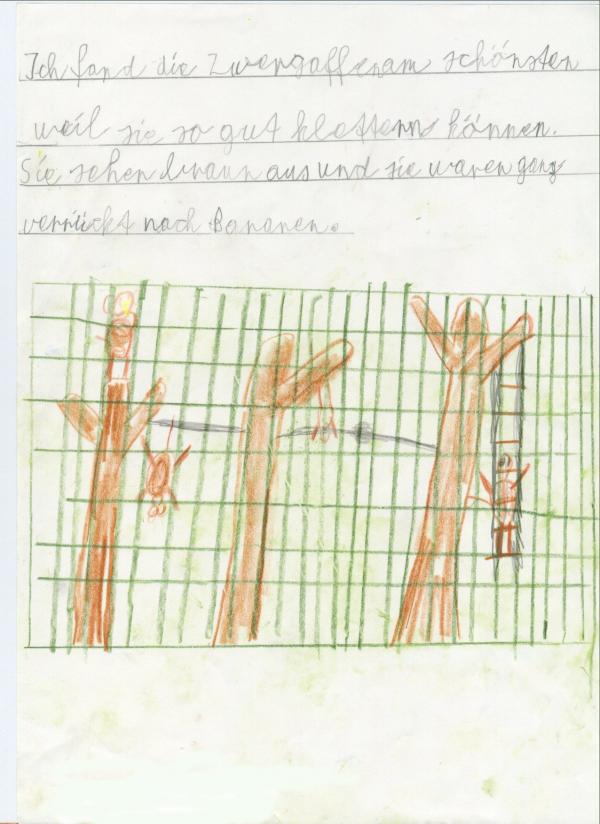 Ich fand die Zwergaffen am schönsten
weil sie so gut klettern können.
Sie sehen braun aus und sie waren ganz
verrückt nach Bananen.